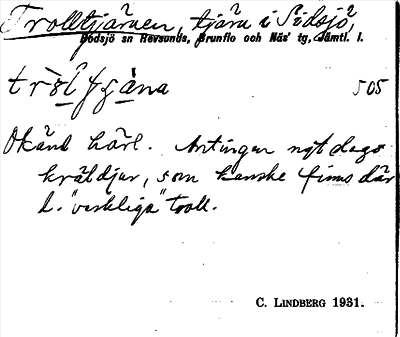 Trolltjärnen, tjärn i Sidsjö,
Bodsjö sn Revsunds, Brunflo och Näs' tg, Jämtl. l.
505
Okänd härl. Antingen ngt dags
kräldjur, som kanske finns där
l. "verkliga" troll.
C. LINDBERG 1931.